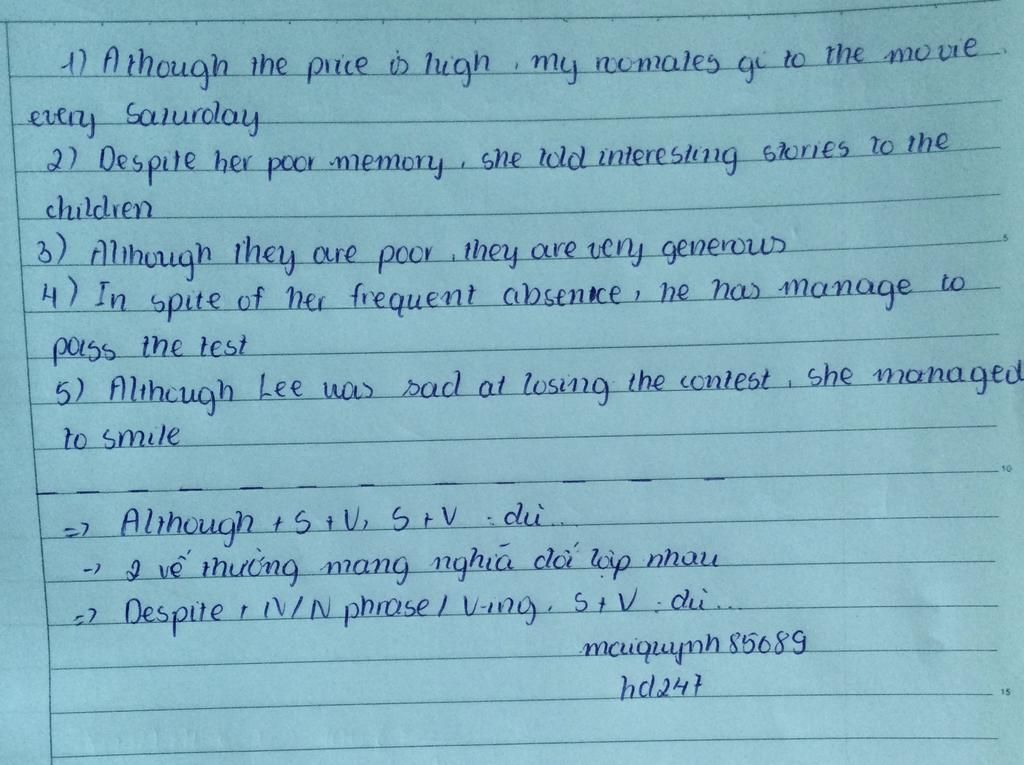 1) Athough the price is high, my roomates gi to the movie
every Saturday
2) Despite her poor memory, she told interesting stories to the
children
3) Although they are poor, they are very generous
4) In spite of her frequent absence, he has manage to
pass the test
5) Although Lee was sad at losing the contest, she managed
to smile
=> Although + S + V, S + V : dù...
-> 2 vế thường mang nghĩa đối lập nhau
=> Despite + N/N phrase/ V-ing, S + V : dù...
maiquynh85689
hd247
5
10
15